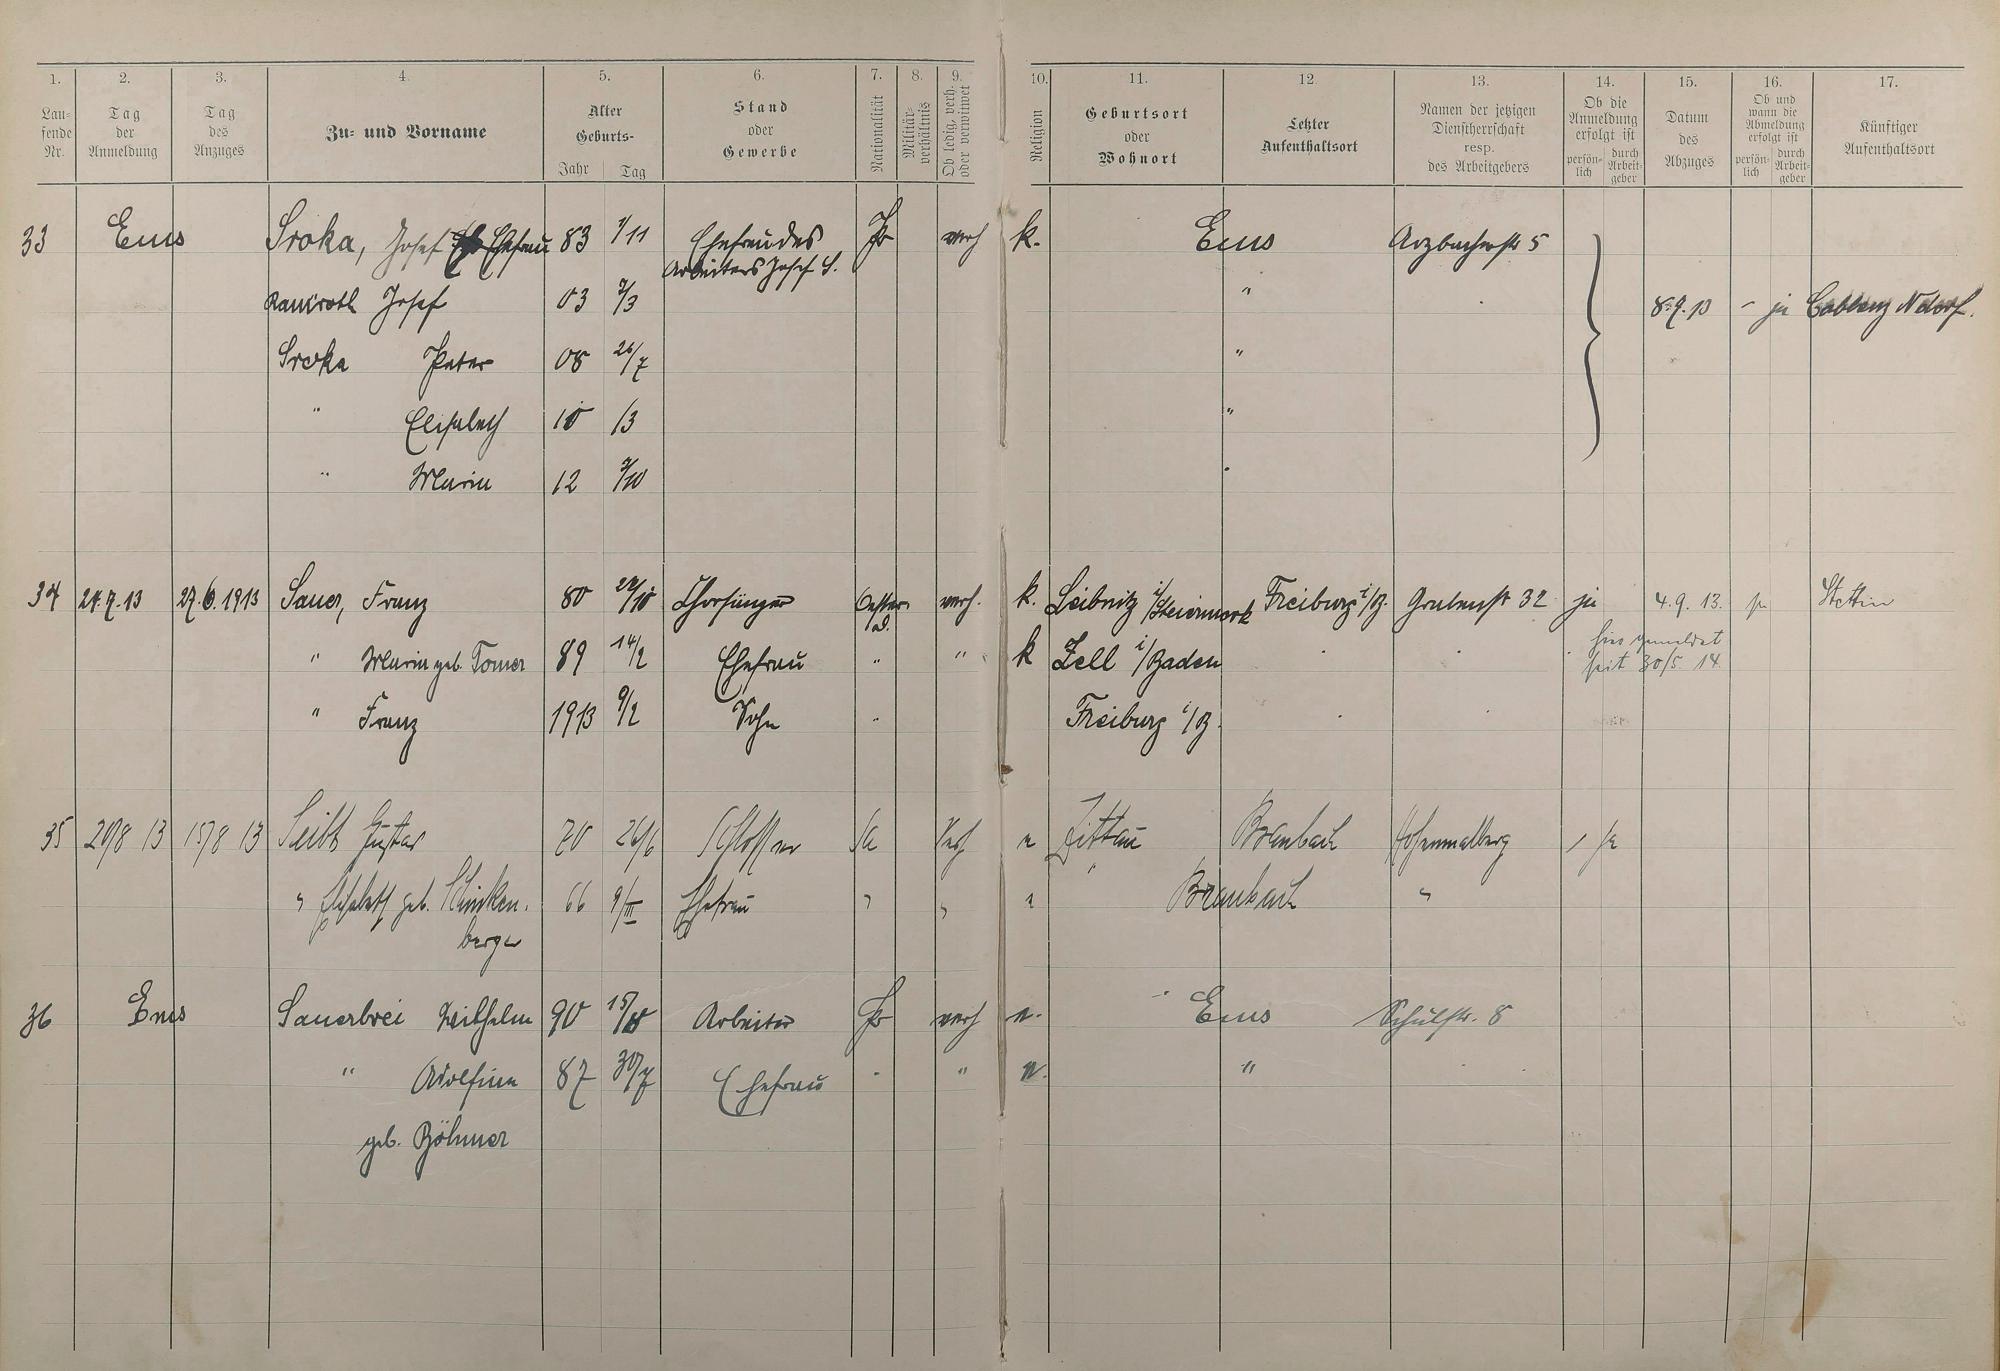 1. 2. 3. 4. 5. 6. 7. 8. 9. 10. 11. 12. 13. 14. 15. 16. 17.
Laufende Nr.
Tag der Anmeldung
Tag des Anzuges
Zu- und Vorname
Alter
Geburts-
Jahr Tag
Stand oder Gewerbe
Nationalität
Militärverhältnis
Ob ledig, verh. oder verwitwet
Religion
Geburtsort oder Wohnort
Letzter Aufenthaltsort
Namen der jetzigen Dienstherrschaft resp. des Arbeitgebers
Ob die Anmeldung erfolgt ist
persönlich durch Arbeitgeber
Datum des Abzuges
Ob und wann die Abmeldung erfolgt ist
persönlich durch Arbeitgeber
Künftiger Aufenthaltsort
33 Ems Sroka, Josef Ehefrau 83 1/11 Ehefrau des Pr verh k. Ems Arzbacherstr 5
Arbeiters Josef S.
Josef 03 "
8.9.13 - ja Coblenz Ndorf.
Sroka Peter 08 26/7 "
" Elisabeth 10 /3 "
" Maria 12 "
34 24.7.13 27.6.1913 Sauer, Franz 80 Chorsänger Oester. verh. k. Leibnitz i/Steiermark Freiburg i/B. Grabenstr 32 ja 4.9.13. ja Stettin
hier gemeldet
seit 30/5 14
" Maria geb. Tomer 89 14/2 Ehefrau " " k Zell i/Baden
" Franz 1913 9/2 Sohn " Freiburg i/B.
35 20/8 13 15/8 13 Seibt Gustav 70 26/6 Schlosser Sa Verh Zittau Braubach / ja
" Elisabeth geb. Schinken- 66 9/III Ehefrau " " Braubach "
berger
36 Ems Sauerbrei Wilhelm 90 Arbeiter Pr verh e. Ems Schulstr. 8
" Adolfine 87 30/7 Ehefrau " " e. "
geb. Böhmer